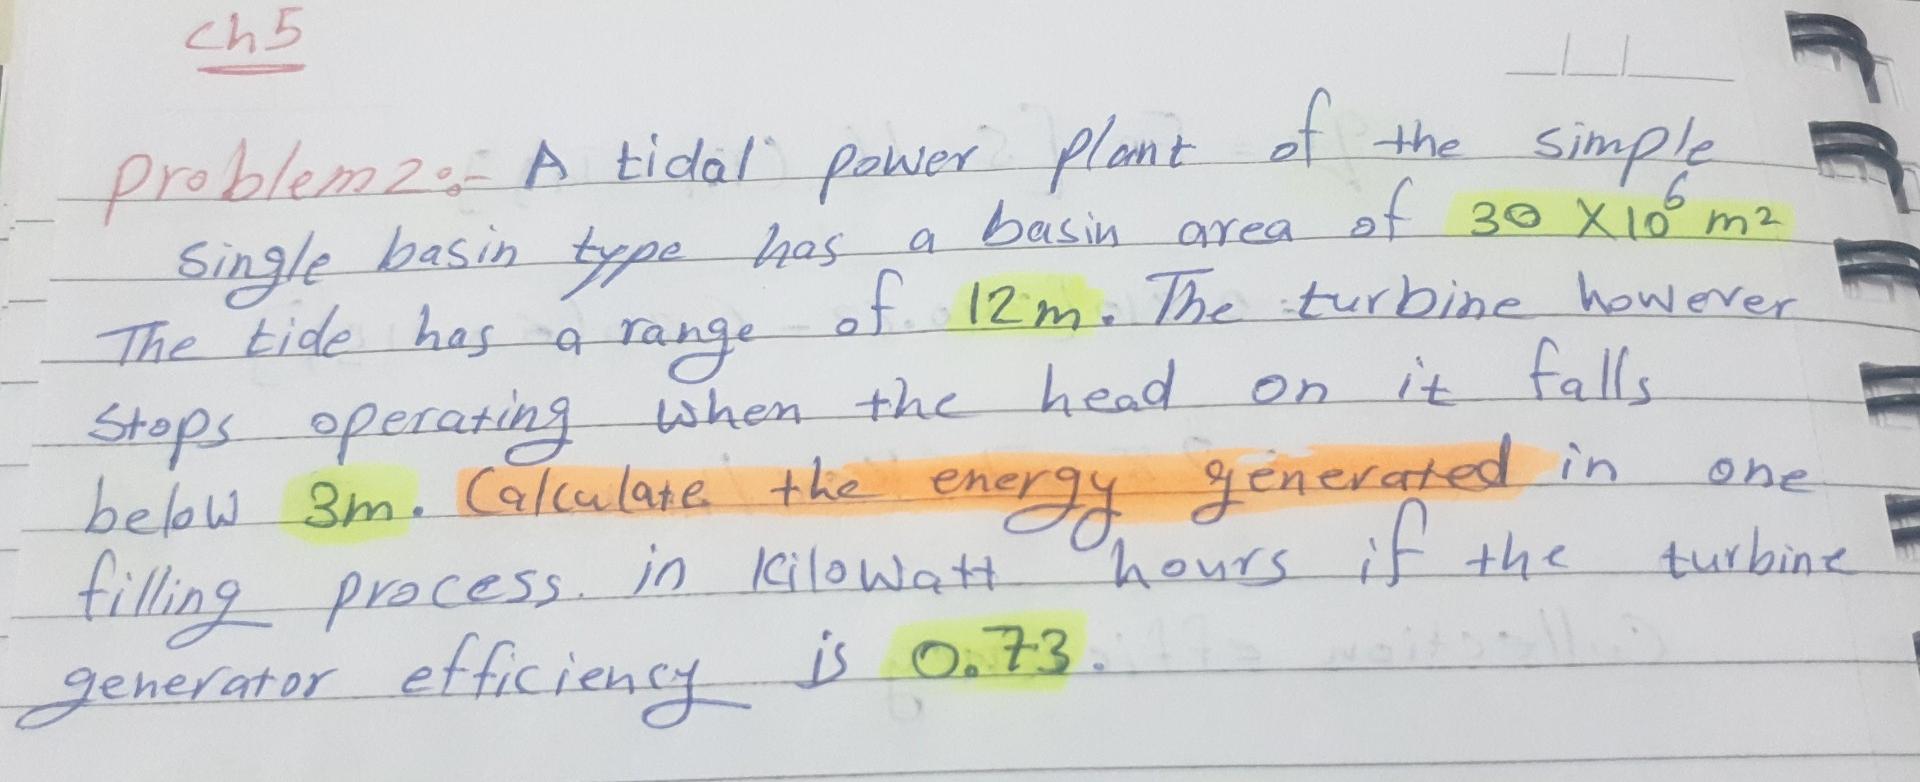 ch5
problem2:- A tidal power plant of the simple
single basin type has a basin area of 30 X10⁶ m²
The tide has a range of 12m. The turbine however
stops operating when the head on it falls
below 3m. Calculate the energy generated in one
filling process. in kilowatt hours if the turbine
generator efficiency is 0.73.